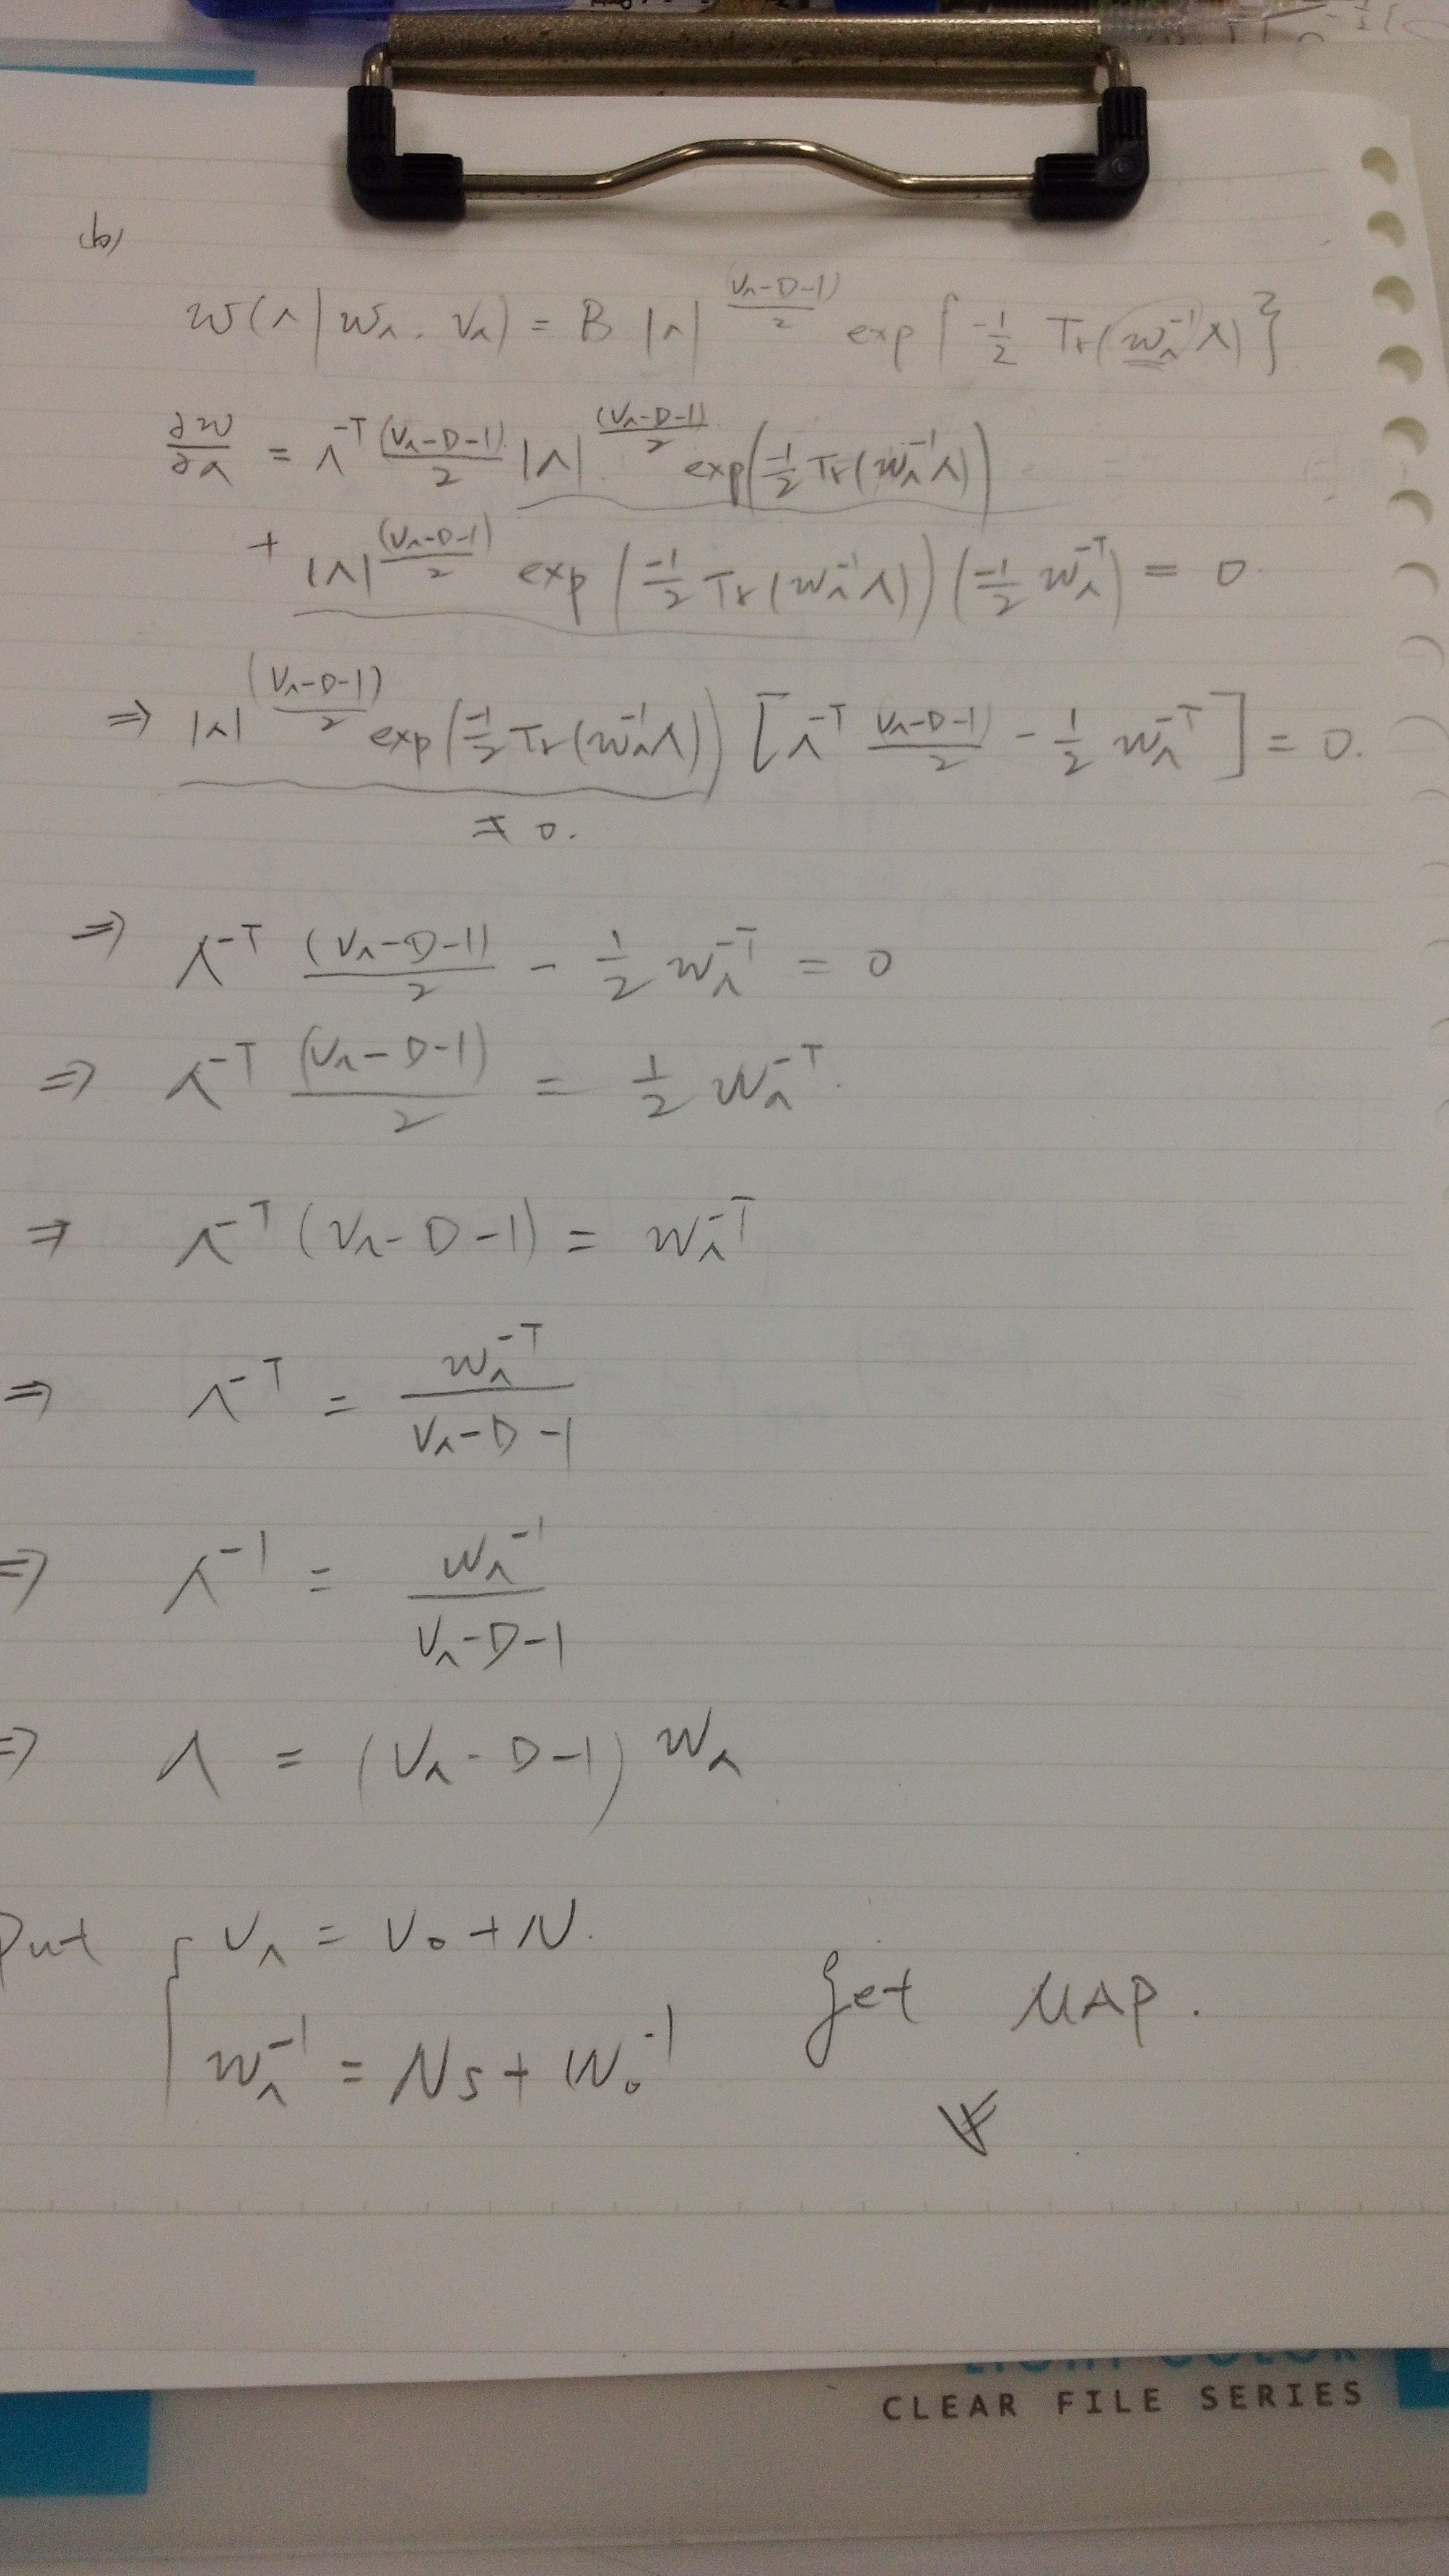 (b)
W(Λ|W_Λ, ν_Λ) = B |Λ|^{(ν_Λ-D-1)/2} exp{-1/2 Tr(W_Λ^{-1}Λ)}
∂W/∂Λ = Λ^{-T} (ν_Λ-D-1)/2 |Λ|^{(ν_Λ-D-1)/2} exp(-1/2 Tr(W_Λ^{-1}Λ))
+ |Λ|^{(ν_Λ-D-1)/2} exp(-1/2 Tr(W_Λ^{-1}Λ)) (-1/2 W_Λ^{-T}) = 0.
⇒ |Λ|^{(ν_Λ-D-1)/2} exp(-1/2 Tr(W_Λ^{-1}Λ)) [Λ^{-T} (ν_Λ-D-1)/2 - 1/2 W_Λ^{-T}] = 0.
≠ 0.
⇒ Λ^{-T} (ν_Λ-D-1)/2 - 1/2 W_Λ^{-T} = 0
⇒ Λ^{-T} (ν_Λ-D-1)/2 = 1/2 W_Λ^{-T}.
⇒ Λ^{-T} (ν_Λ-D-1) = W_Λ^{-T}
⇒ Λ^{-T} = W_Λ^{-T}/(ν_Λ-D-1)
⇒ Λ^{-1} = W_Λ^{-1}/(ν_Λ-D-1)
⇒ Λ = (ν_Λ-D-1) W_Λ
Put { ν_Λ = ν_0 + N.
W_Λ^{-1} = NS + W_0^{-1} get MAP.
CLEAR FILE SERIES